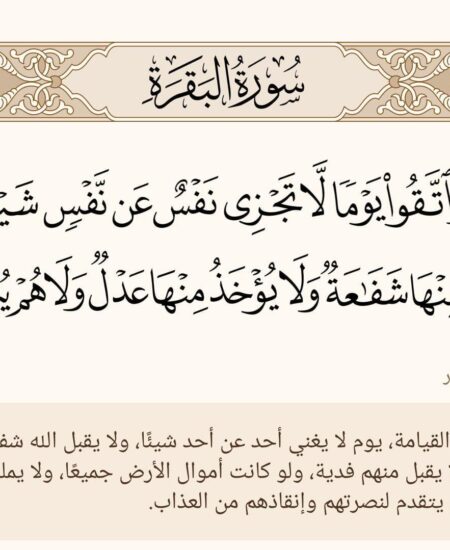 سُورَةُ البَقَرَةِ
ٱتَّقُوا۟ يَوْمًا لَّا تَجْزِى نَفْسٌ عَن نَّفْسٍ
شَفَـٰعَةٌ وَلَا يُؤْخَذُ مِنْهَا عَدْلٌ وَلَا هُمْ
القيامة، يوم لا يغني أحد عن أحد شيئًا، ولا يقبل الله
يقبل منهم فدية، ولو كانت أموال الأرض جميعًا، ولا
يتقدم لنصرتهم وإنقاذهم من العذاب.